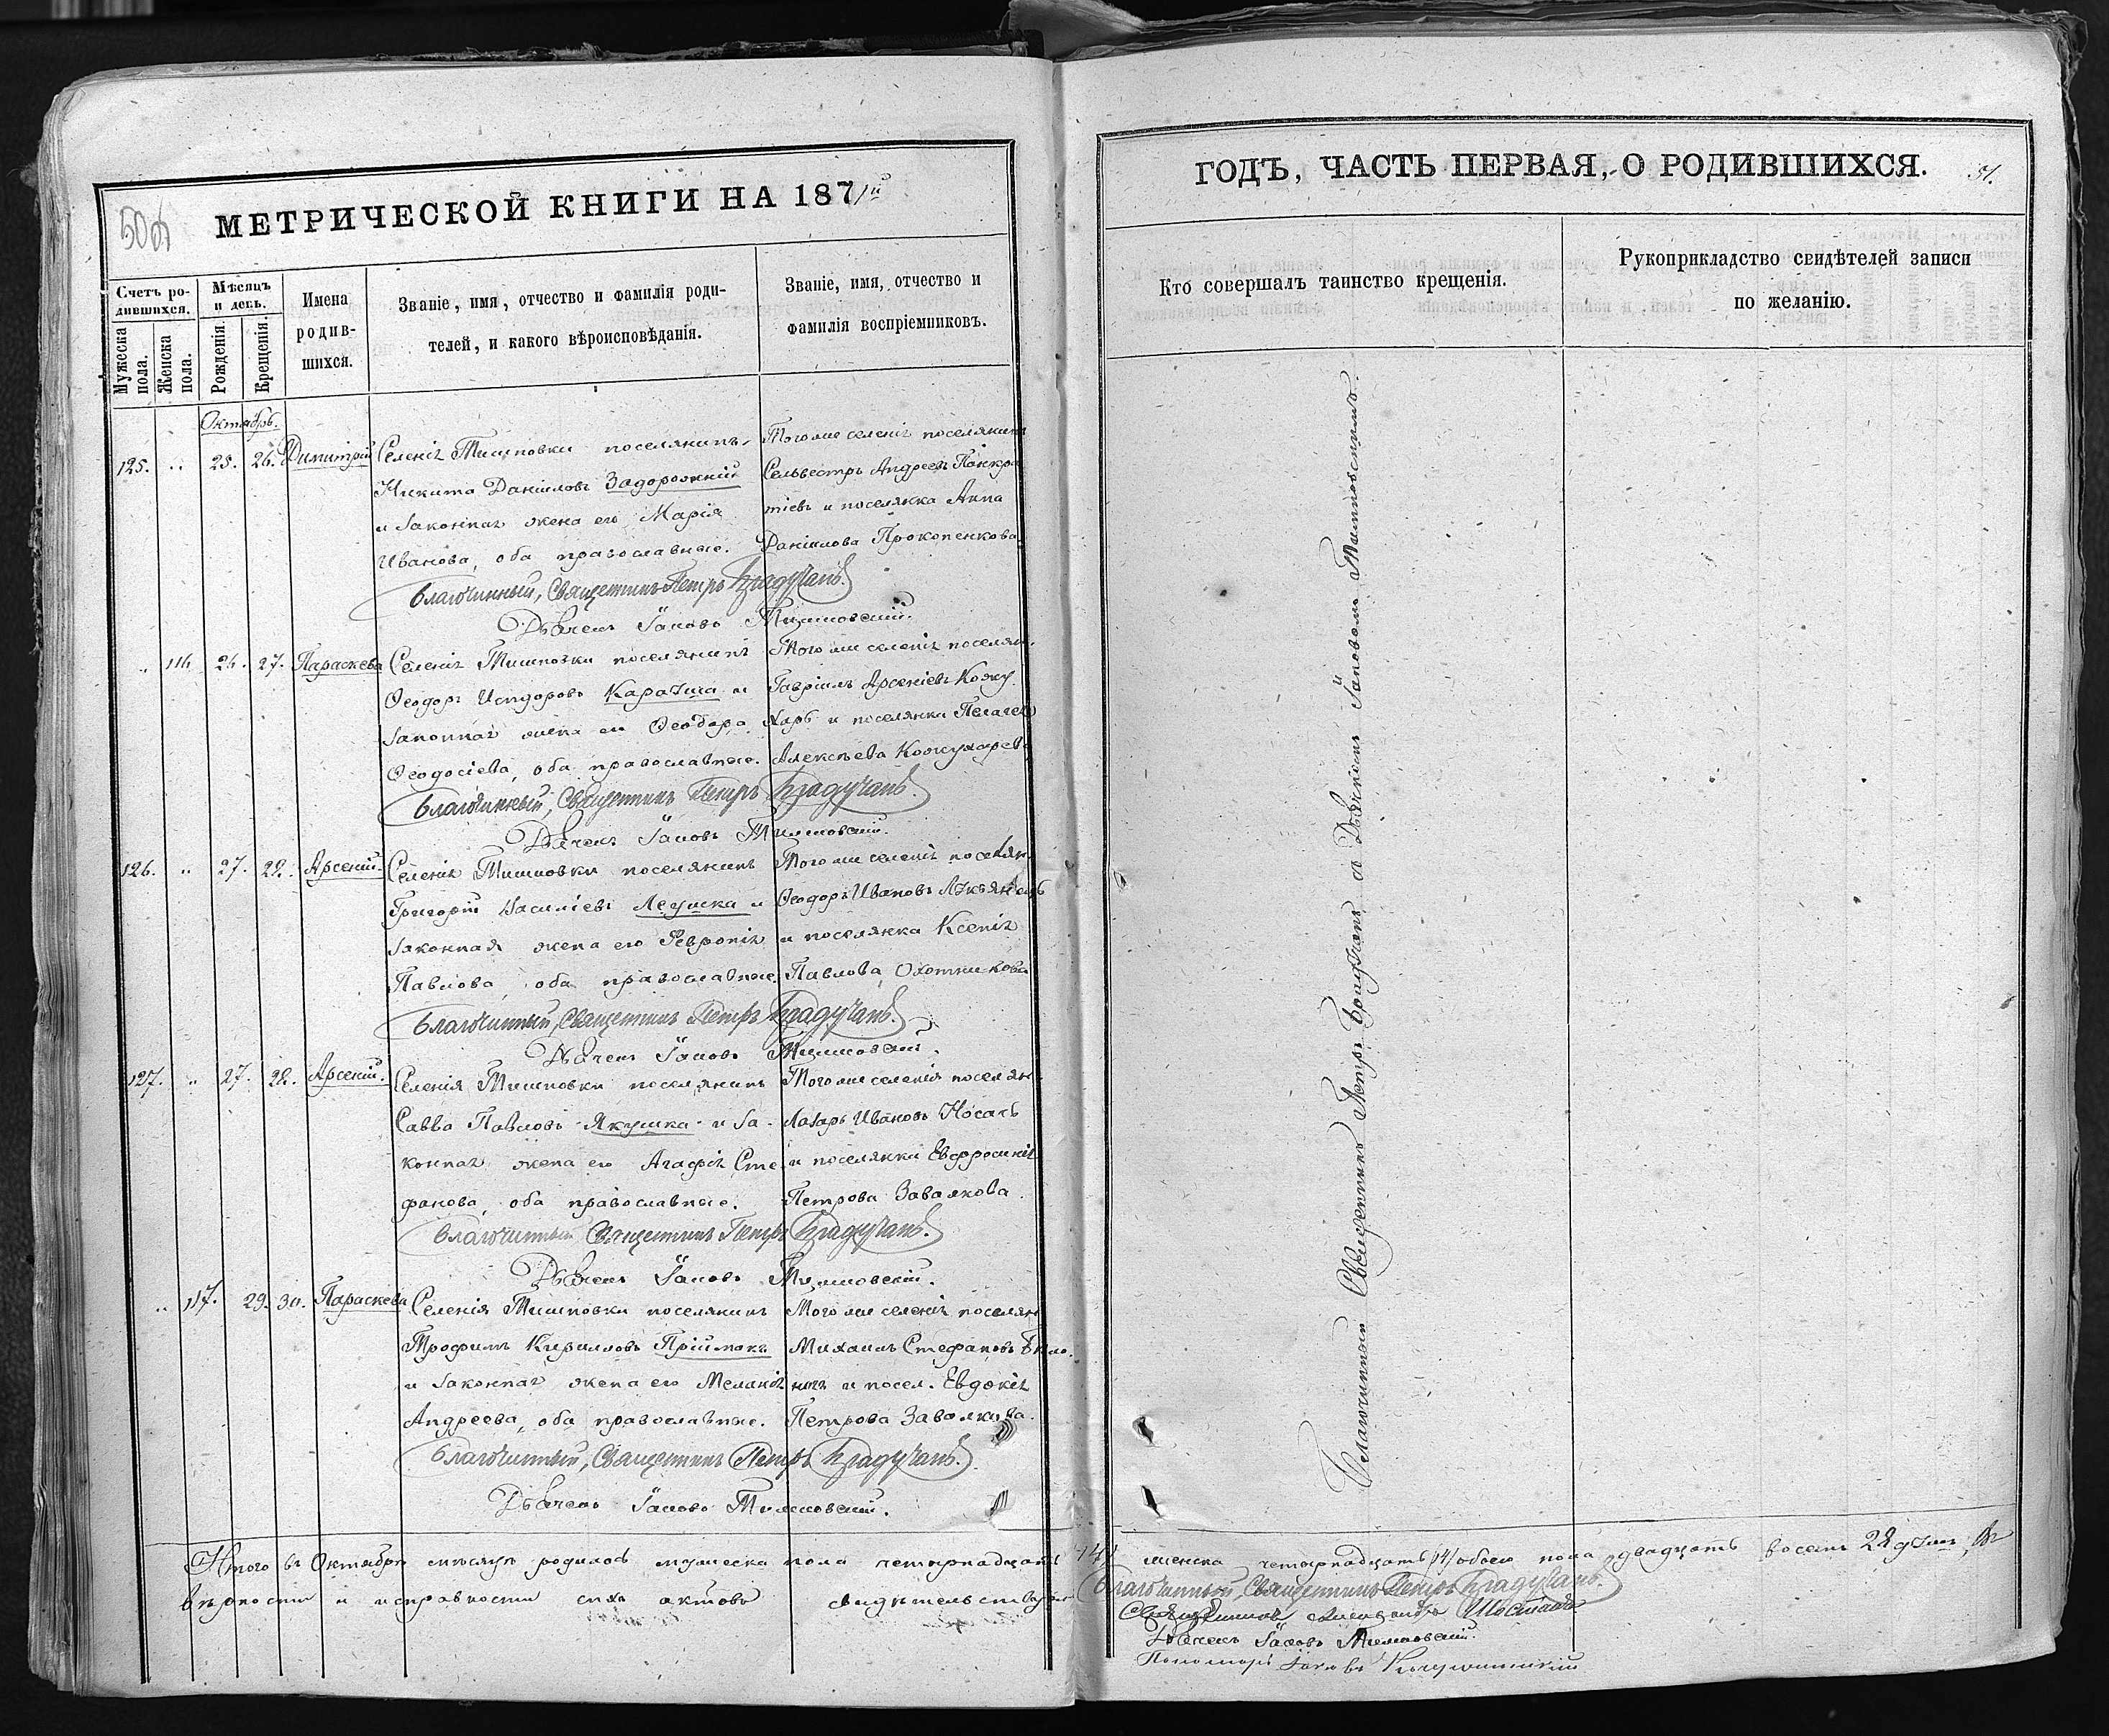 МЕТРИЧЕСКОЙ КНИГИ НА 1871й
Счетъ ро-
дившихся.
Мужеска пола.
Женска пола.
Мѣсяцъ и день.
Рожденія.
Крещенія
Имена
родив-
шихся.
Званіе, имя, отчество и фамилія роди-
телей, и какого вѣроисповѣданія.
Званіе, имя, отчество и
фамилія воспріемниковъ.
Октябрь.
125. „ 25. 26. Димитрій
Селенія Тишковки поселянинъ
Никита Даніиловъ Задорожній
и законная жена его Марія
Иванова, оба православные.
Того же селенія поселянинъ
Сельвестръ Андреевъ Панкра
тіевъ и поселянка Анна
Даніилова Прокопенкова
Благочинный, Священникъ Петръ
Дьячекъ Іаковъ
„ 116. 26. 27. Параскева
Селенія Тишковки поселянинъ
Ѳеодоръ Исидоровъ и
законная жена его Ѳеодора
Ѳеодосіева, оба православные.
Того же селенія поселян.
Гавріилъ Арсеніевъ Кожу
харь и поселянка Пелагея
Алексѣева Кожухарева
Благочинный, Священникъ Петръ
Дьячекъ Іаковъ
126. „ 27. 28. Арсеній.
Селенія Тишковки поселянинъ
Григорій Василіевъ и
законная жена его Февронія
Павлова, оба православные.
Того же селенія поселян.
Ѳеодоръ Ивановъ
и поселянка Ксенія
Павлова Охотникова
Благочинный, Священникъ Петръ
Дьячекъ Іаковъ
127. „ 27. 28. Арсеній.
Селенія Тишковки поселянинъ
Савва Павловъ Якушка и за-
конная жена его Агафія Сте
фанова, оба православные.
Того же селенія поселян.
Лазарь Ивановъ Носачь
и поселянка Евфросинія
Петрова Завалкова
Благочинный Священникъ Петръ
Дьячекъ Іаковъ
„ 117. 29. 30. Параскева
Селенія Тишковки поселянинъ
Трофимъ Кирилловъ Пріймакъ
и законная жена его Меланія
Андреева, оба православные.
Того же селенія поселян
Михаилъ Стефановъ
и посел. Евдокія
Петрова Завалкова.
Благочинный, Священникъ Петръ
Дьячекъ Іаковъ
Итого въ Октябрѣ мѣсяцѣ родилось мужеска пола четырнадцать
вѣрности и исправности сихъ актовъ свидѣтельствуемъ
ГОДЪ, ЧАСТЬ ПЕРВАЯ, О РОДИВШИХСЯ.
Кто совершалъ таинство крещенія.
Рукоприкладство свидѣтелей записи
по желанію.
Благочинный Священникъ Петръ съ Дьячкомъ Іаковомъ
14/ женска четырнадцать /14/ обоего пола двадцать восемь 28 душъ, Въ
Благочинный, Священникъ Петръ
Священникъ Александръ
Дьячекъ Іаковъ
Пономарь Іаковъ